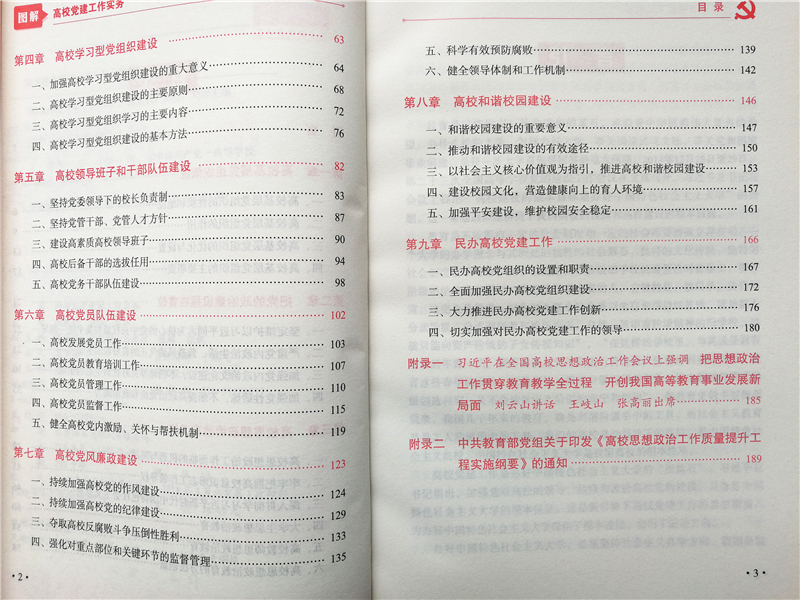 图解 高校党建工作实务
第四章 高校学习型党组织建设 63
一、加强高校学习型党组织建设的重大意义 64
二、高校学习型党组织建设的主要原则 68
三、高校学习型党组织学习的主要内容 72
四、高校学习型党组织建设的基本方法 76
第五章 高校领导班子和干部队伍建设 82
一、坚持党委领导下的校长负责制 83
二、坚持党管干部、党管人才方针 87
三、建设高素质高校领导班子 90
四、高校后备干部的选拔任用 94
五、高校党务干部队伍建设 98
第六章 高校党员队伍建设 102
一、高校发展党员工作 103
二、高校党员教育培训工作 107
三、高校党员管理工作 110
四、高校党员监督工作 115
五、健全高校党内激励、关怀与帮扶机制 119
第七章 高校党风廉政建设 123
一、持续加强高校党的作风建设 124
二、持续加强高校党的纪律建设 129
三、夺取高校反腐败斗争压倒性胜利 133
四、强化对重点部位和关键环节的监督管理 135
·2·
目录
五、科学有效预防腐败 139
六、健全领导体制和工作机制 142
第八章 高校和谐校园建设 146
一、和谐校园建设的重要意义 147
二、推动和谐校园建设的有效途径 150
三、以社会主义核心价值观为指引，推进高校和谐校园建设 153
四、建设校园文化，营造健康向上的育人环境 157
五、加强平安建设，维护校园安全稳定 161
第九章 民办高校党建工作 166
一、民办高校党组织的设置和职责 167
二、全面加强民办高校党组织建设 172
三、大力推进民办高校党建工作创新 176
四、切实加强对民办高校党建工作的领导 180
附录一 习近平在全国高校思想政治工作会议上强调 把思想政治
工作贯穿教育教学全过程 开创我国高等教育事业发展新
局面 刘云山讲话 王岐山 张高丽出席 185
附录二 中共教育部党组关于印发《高校思想政治工作质量提升工
程实施纲要》的通知 189
·3·